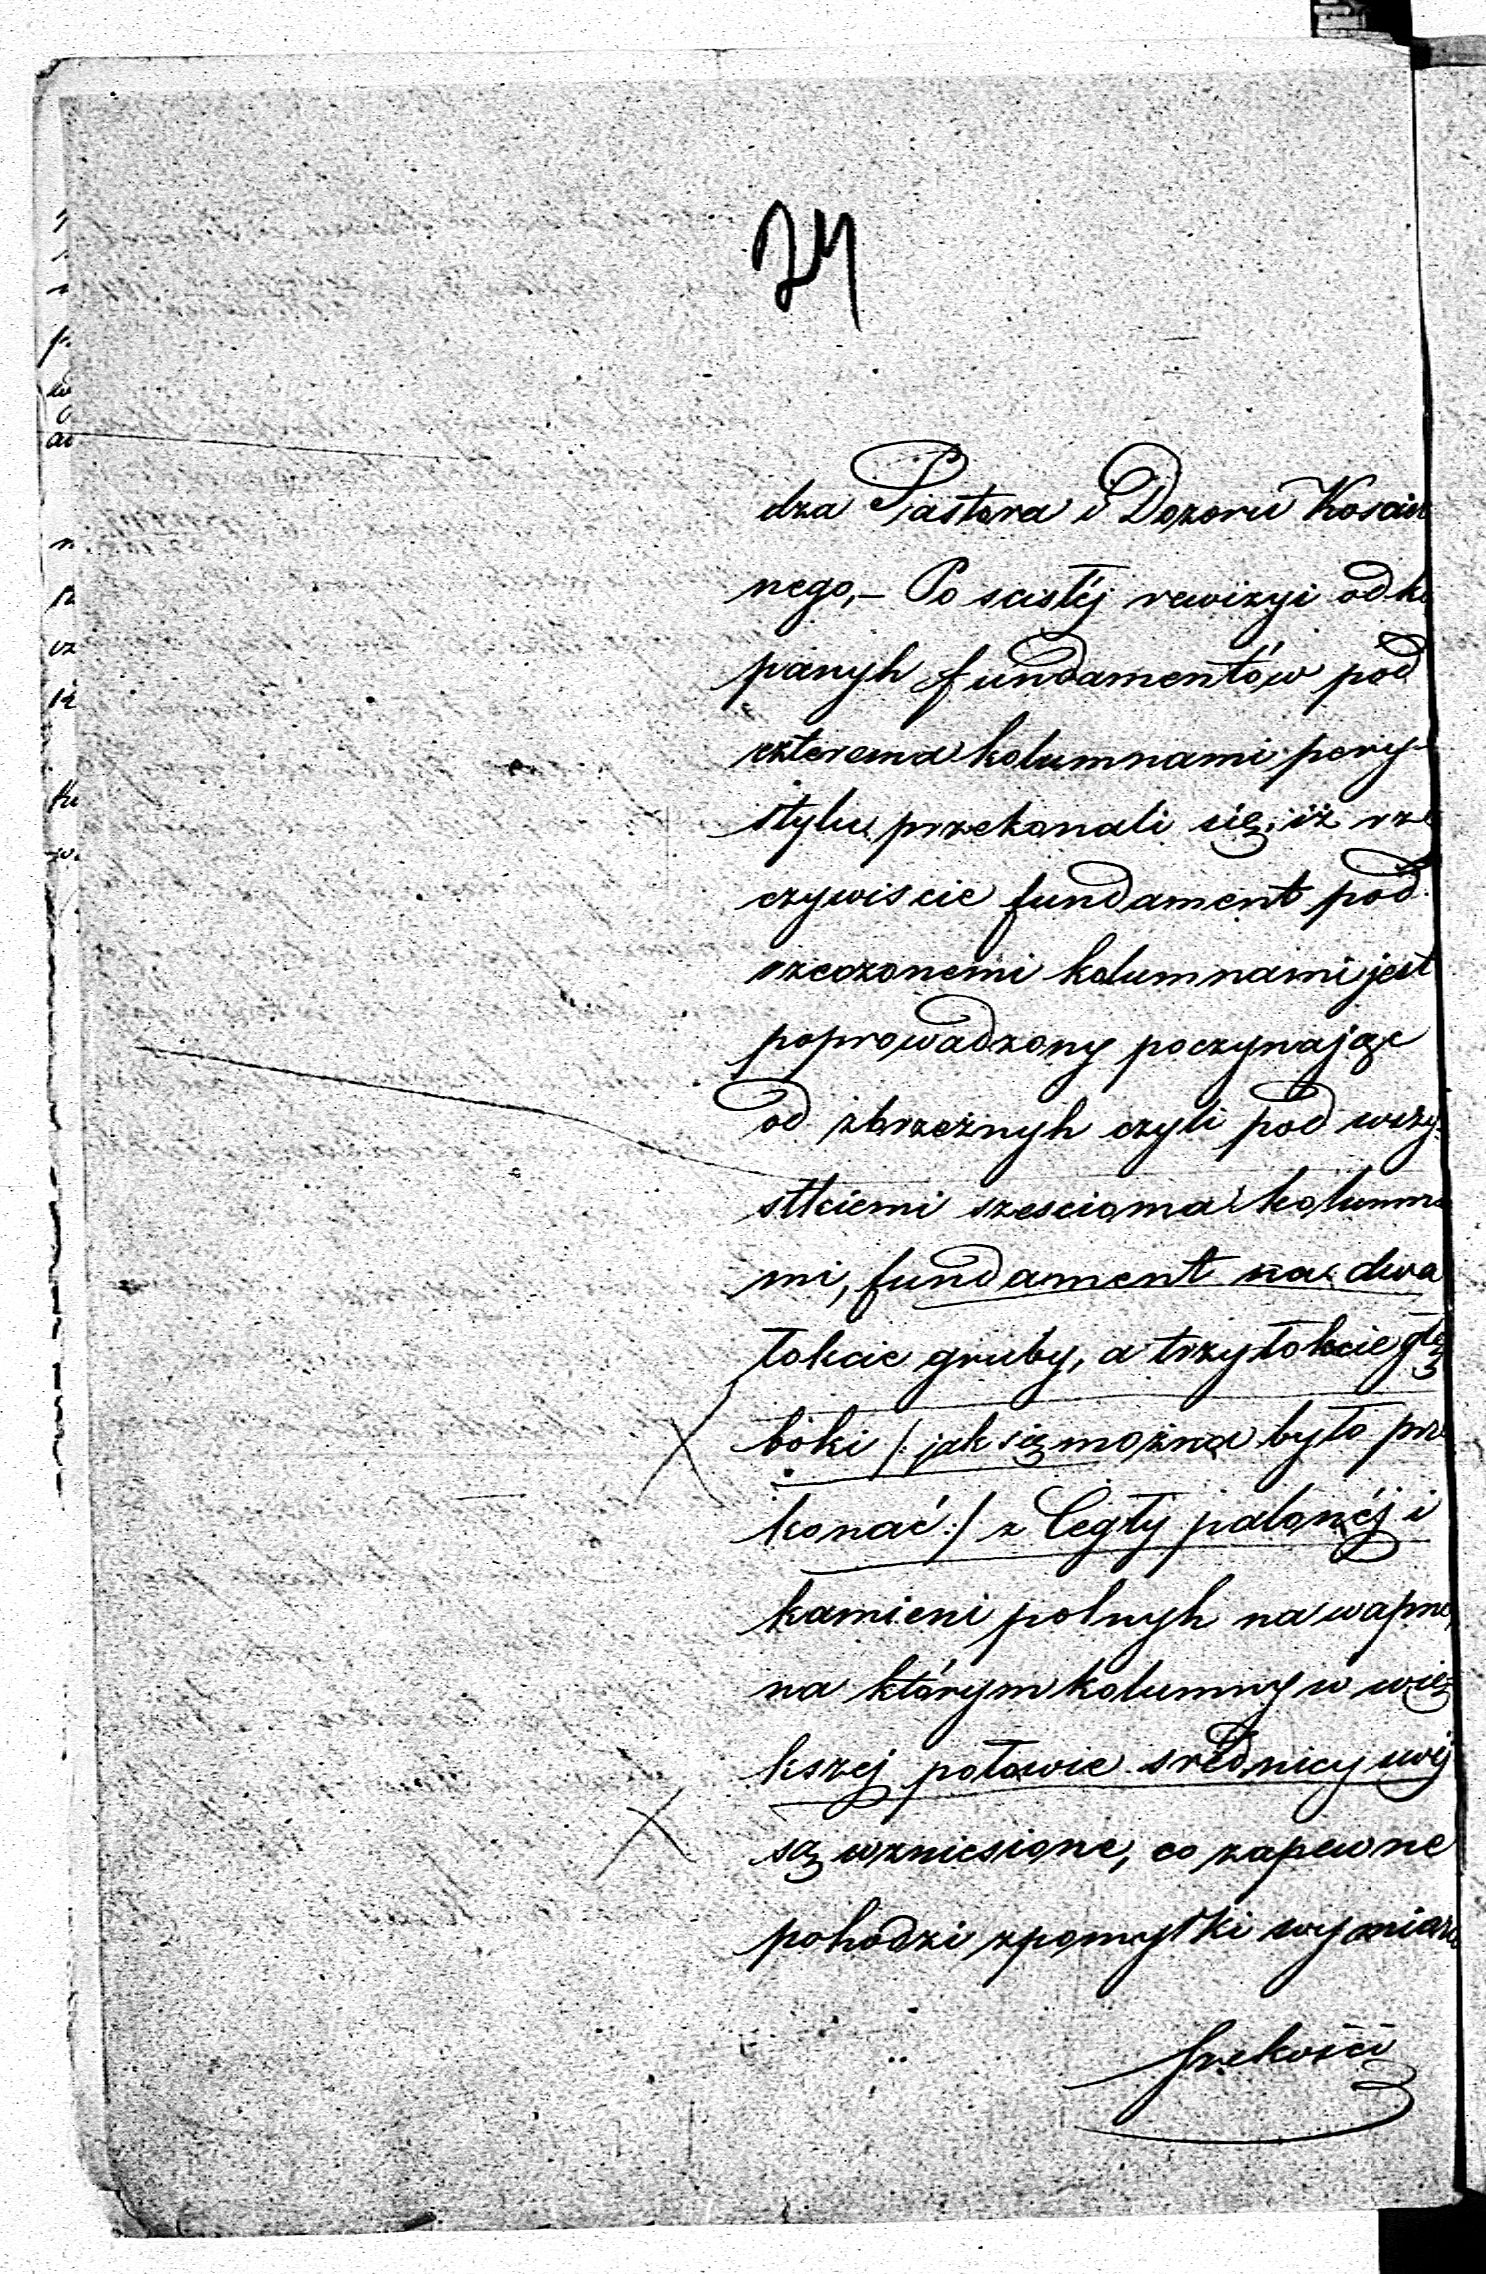 24
dza Pastora i Dozoru Koscie
nego,- Po scisłéj rewizyi odko
panyh fundamentów pod
czterema kolumnami pery-
stylu przekonali się, iż rze
czywiscie fundament pod
rzeczonemi kolumnami jest
poprowadzony poczynając
od zbrzeżnyh czyli pod wszy-
stkiemi sześcioma kolumna
mi, fundament na dwa
łokcie gruby, a trzy łokcie głę
boki /: jak się można było prze
konać :/ z Cegły palonéj i
kamieni polnyh na wapno,
na którym kolumny w wię
kszej połowie srednicy swéj
są wzniesione, co zapewne
pohodzi z pomyłki wymiaru